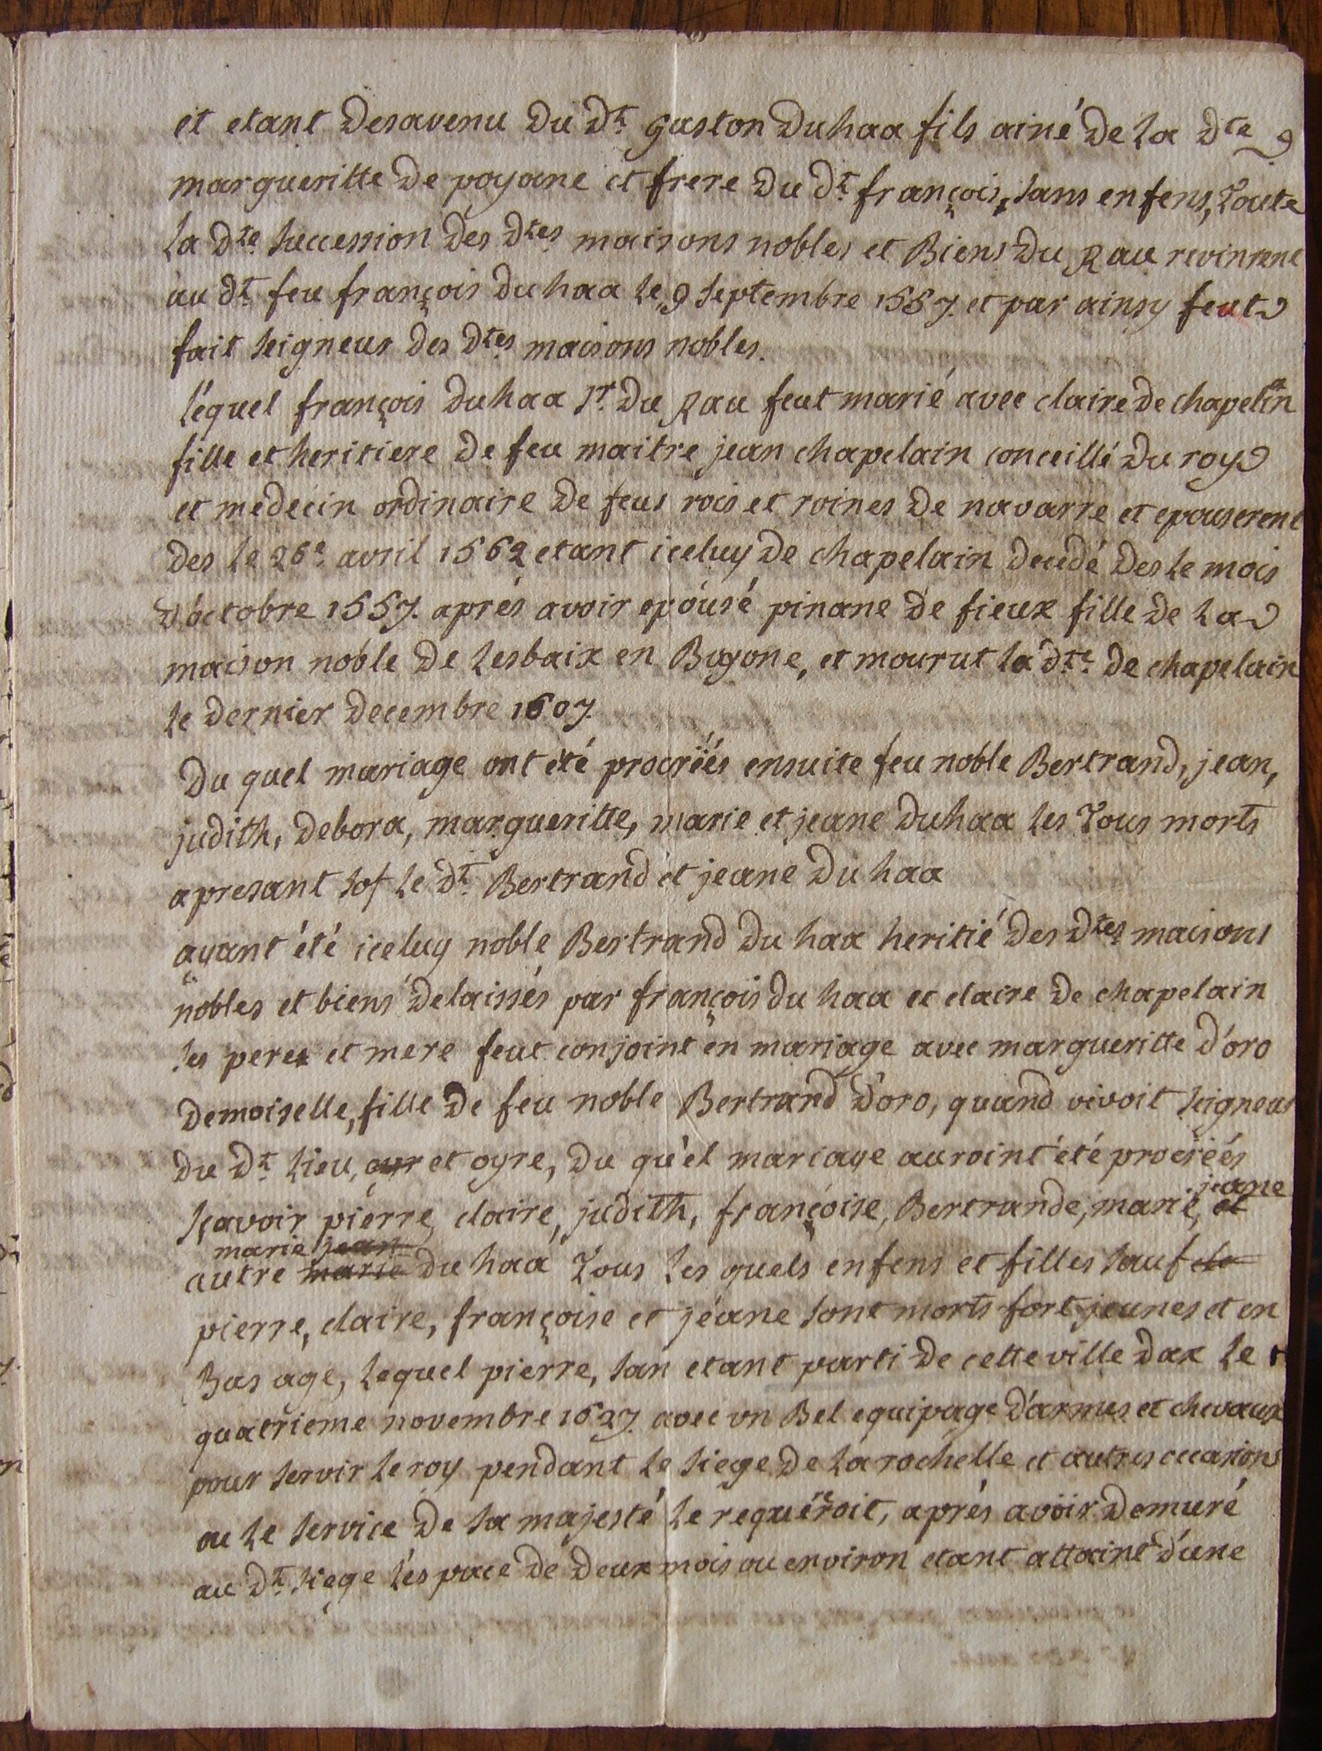 et etant desavenu du dt gaston duhaa fils ainé de la dte
margueritte de poyane et frere du dt françois, sans enfens, toute
la dte succession des dtes maisons nobles et Biens du Rau revinrent
au dt feu françois duhaa le 9 septembre 1557. et par ainsy feut
fait seigneur des dtes maisons nobles.
léquel françois duhaa sr. du Rau feut marié avec claire de chapelain
fille et heritiere de feu maitre jean chapelain conceillé du roy
et medecin ordinaire de feus rois et roines de navarre et epouserent
des le 26e. avril 1562 etant iceluy de chapelain decedé des le mois
d'octobre 1557. aprés avoir epousé pinane de fieux fille de la
maison noble de lesbaix en Bayone, et mourut la dte. de chapelain
le dernier decembre 1607.
du quel mariage ont été procréés ensuite feu noble Bertrand, jean,
judith, debora, margueritte, marie et jeane duhaa les tous morts
apresant sof le dt. Bertrand et jeane du haa
ayant été iceluy noble Bertrand du haa heritié des dtes maisons
nobles et biens delaissés par françois du haa et claire de chapelain
ses peres et mere feut conjoint en mariage avec margueritte d'oro
demoiselle, fille de feu noble Bertrand d'oro, quand vivoit seigneur
du dt. lieu, oyr et oyre, du qu'el mariage auroint été procréés
sçavoir pierre, claire, judith, françoise, Bertrande, marie, et jeane
autre marie marie jean du haa tous les quels enfens et filles sauf le
pierre, claire, françoise et jéane sont morts fort jeunes et en
Bas age, lequel pierre, san etant parti de cette ville dax le
quatrieme novembre 1627. avec un Bel equipage d'armes et chevaux
pour servir le roy pendant le siege de la rochelle et autres occasions
ou le service de sa majesté le requéroit, aprés avoir demuré
au dt. siege l'éspace de deux mois ou environ etant attaint d'une